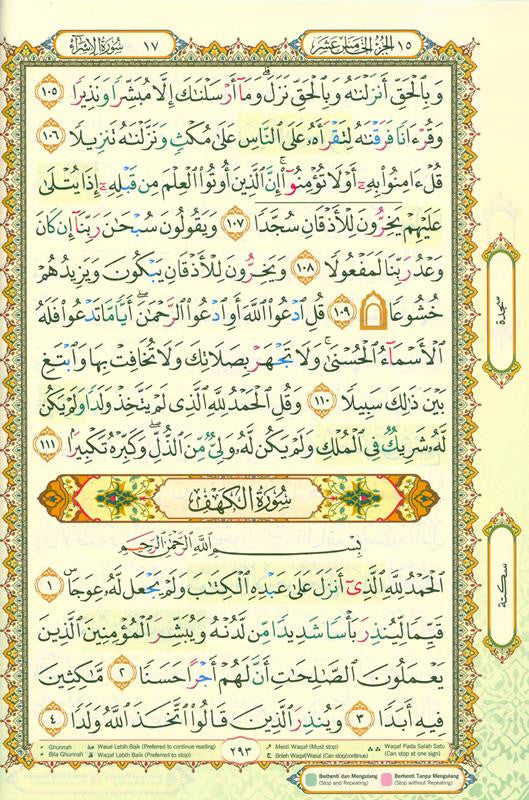 ١٥ الجزء الخامس عشر
سورة الإسراء ١٧
وَبِالْحَقِّ أَنزَلْنَاهُ وَبِالْحَقِّ نَزَلَ ۗ وَمَا أَرْسَلْنَاكَ إِلَّا مُبَشِّرًا وَنَذِيرًا ١٠٥
وَقُرْءَانًا فَرَقْنَاهُ لِتَقْرَأَهُ عَلَى النَّاسِ عَلَىٰ مُكْثٍ وَنَزَّلْنَاهُ تَنزِيلًا ١٠٦
قُلْ ءَامِنُوا بِهِ أَوْ لَا تُؤْمِنُوا ۚ إِنَّ الَّذِينَ أُوتُوا الْعِلْمَ مِن قَبْلِهِ إِذَا يُتْلَىٰ
عَلَيْهِمْ يَخِرُّونَ لِلْأَذْقَانِ سُجَّدًا ١٠٧ وَيَقُولُونَ سُبْحَانَ رَبِّنَا إِن كَانَ
وَعْدُ رَبِّنَا لَمَفْعُولًا ١٠٨ وَيَخِرُّونَ لِلْأَذْقَانِ يَبْكُونَ وَيَزِيدُهُمْ
خُشُوعًا ۩ ١٠٩ قُلِ ادْعُوا اللَّهَ أَوِ ادْعُوا الرَّحْمَٰنَ ۖ أَيًّا مَّا تَدْعُوا فَلَهُ
الْأَسْمَاءُ الْحُسْنَىٰ ۚ وَلَا تَجْهَرْ بِصَلَاتِكَ وَلَا تُخَافِتْ بِهَا وَابْتَغِ
بَيْنَ ذَٰلِكَ سَبِيلًا ١١٠ وَقُلِ الْحَمْدُ لِلَّهِ الَّذِي لَمْ يَتَّخِذْ وَلَدًا وَلَمْ يَكُن
لَّهُ شَرِيكٌ فِي الْمُلْكِ وَلَمْ يَكُن لَّهُ وَلِيٌّ مِّنَ الذُّلِّ ۖ وَكَبِّرْهُ تَكْبِيرًا ١١١
سورة الكهف
بِسْمِ اللَّهِ الرَّحْمَٰنِ الرَّحِيمِ
الْحَمْدُ لِلَّهِ الَّذِي أَنزَلَ عَلَىٰ عَبْدِهِ الْكِتَابَ وَلَمْ يَجْعَل لَّهُ عِوَجًا ۜ ١
قَيِّمًا لِّيُنذِرَ بَأْسًا شَدِيدًا مِّن لَّدُنْهُ وَيُبَشِّرَ الْمُؤْمِنِينَ الَّذِينَ
يَعْمَلُونَ الصَّالِحَاتِ أَنَّ لَهُمْ أَجْرًا حَسَنًا ٢ مَّاكِثِينَ
فِيهِ أَبَدًا ٣ وَيُنذِرَ الَّذِينَ قَالُوا اتَّخَذَ اللَّهُ وَلَدًا ٤
سجدة
سكتة
Ghunnah
Bila Ghunnah
Wasal Lebih Baik (Preferred to continue reading)
Waqaf Lebih Baik (Preferred to stop)
٢٩٣
Mesti Waqaf (Must stop)
Boleh Waqaf/Wasal (Can stop/continue)
Waqaf Pada Salah Satu
(Can stop at one sign)
Berhenti dan Mengulang
(Stop and Repeating)
Berhenti Tanpa Mengulang
(Stop without Repeating)